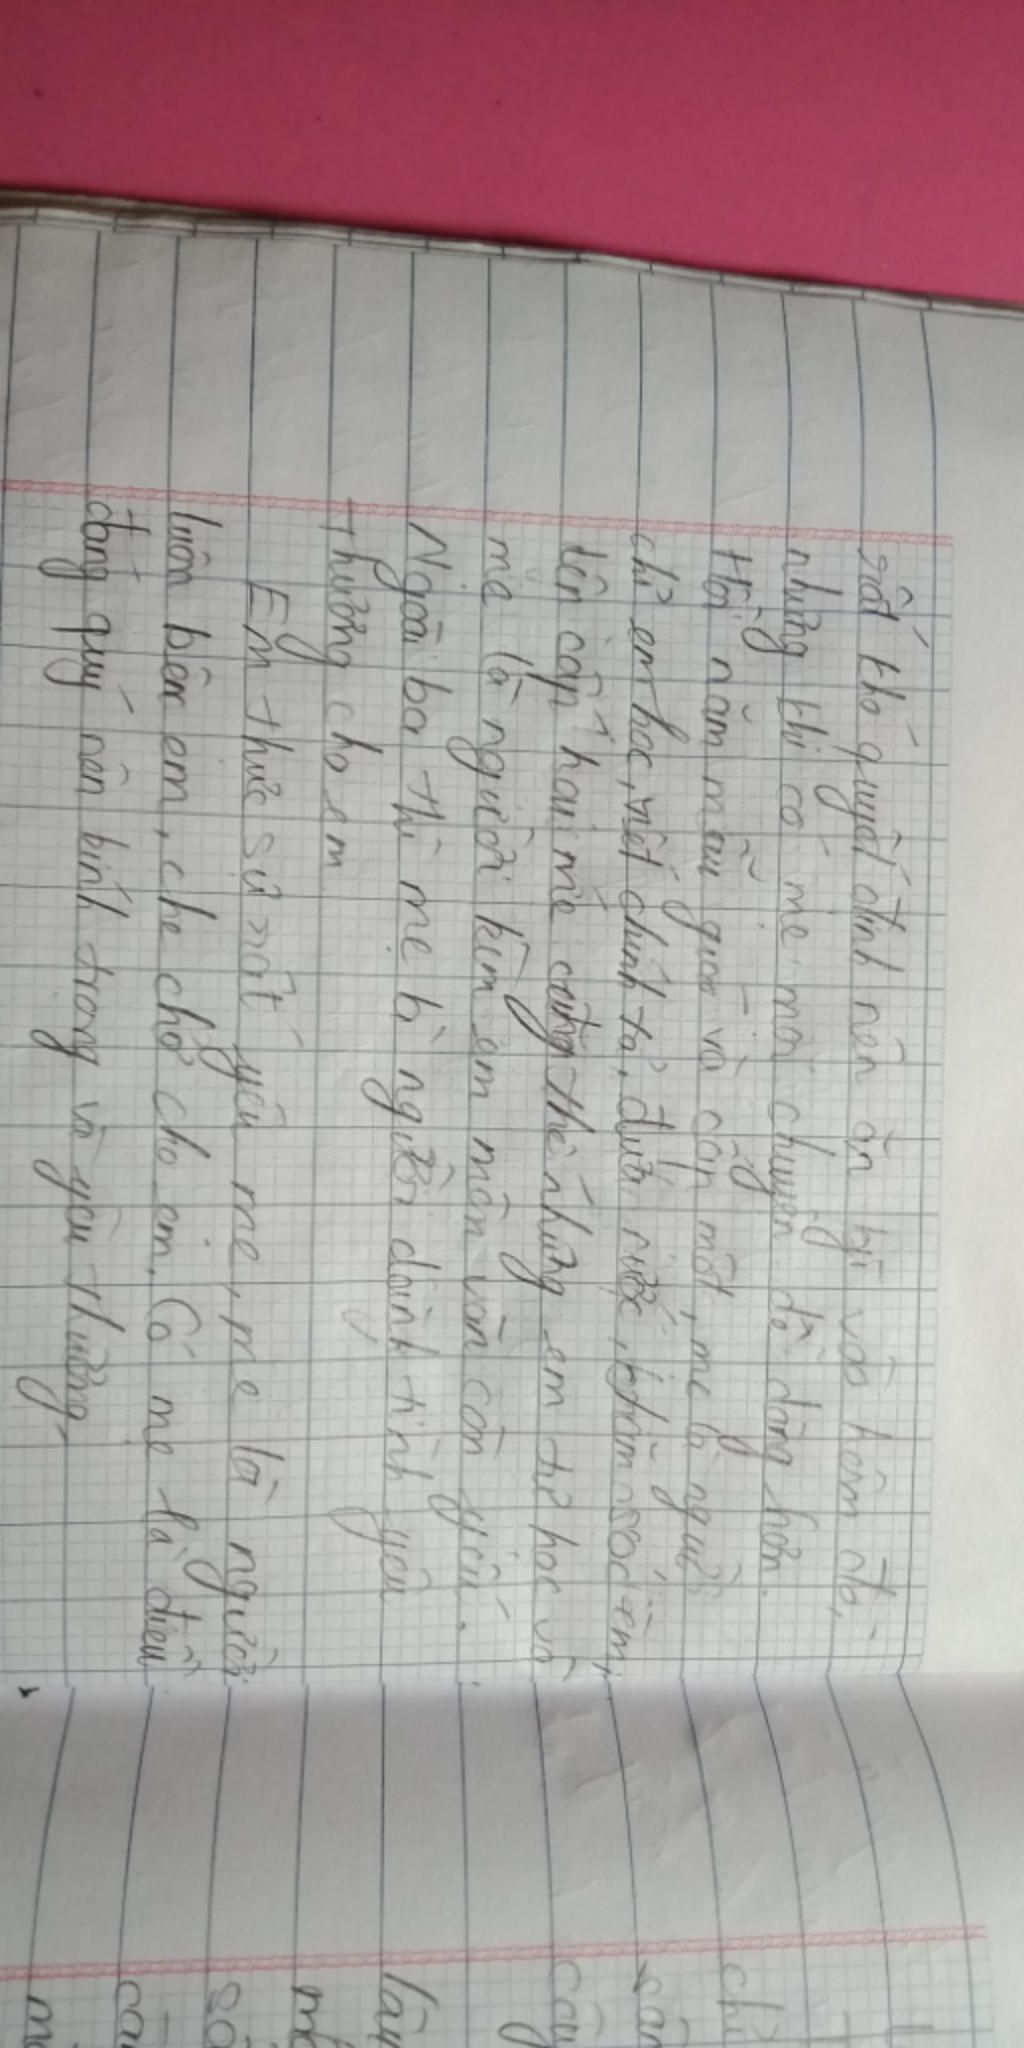 rất khó quyết định nên ăn gì vào hôm đó,
nhưng khi có mẹ mọi chuyện dễ dàng hơn.
Hồi năm mẫu giáo và cấp một, mẹ là người
chỉ em học, viết chính tả, đưa rước, chăm sóc em,
lên cấp hai mẹ cũng thế nhưng em tự học và
mẹ là người kèm em môn văn còn yếu.
Ngoài ba thì mẹ là người dành tình yêu
thương cho em
Em thực sự rất yêu mẹ, mẹ là người
luôn bên em, che chở cho em. Có mẹ là điều
đáng quý nên kính trọng và yêu thương.
chỉ